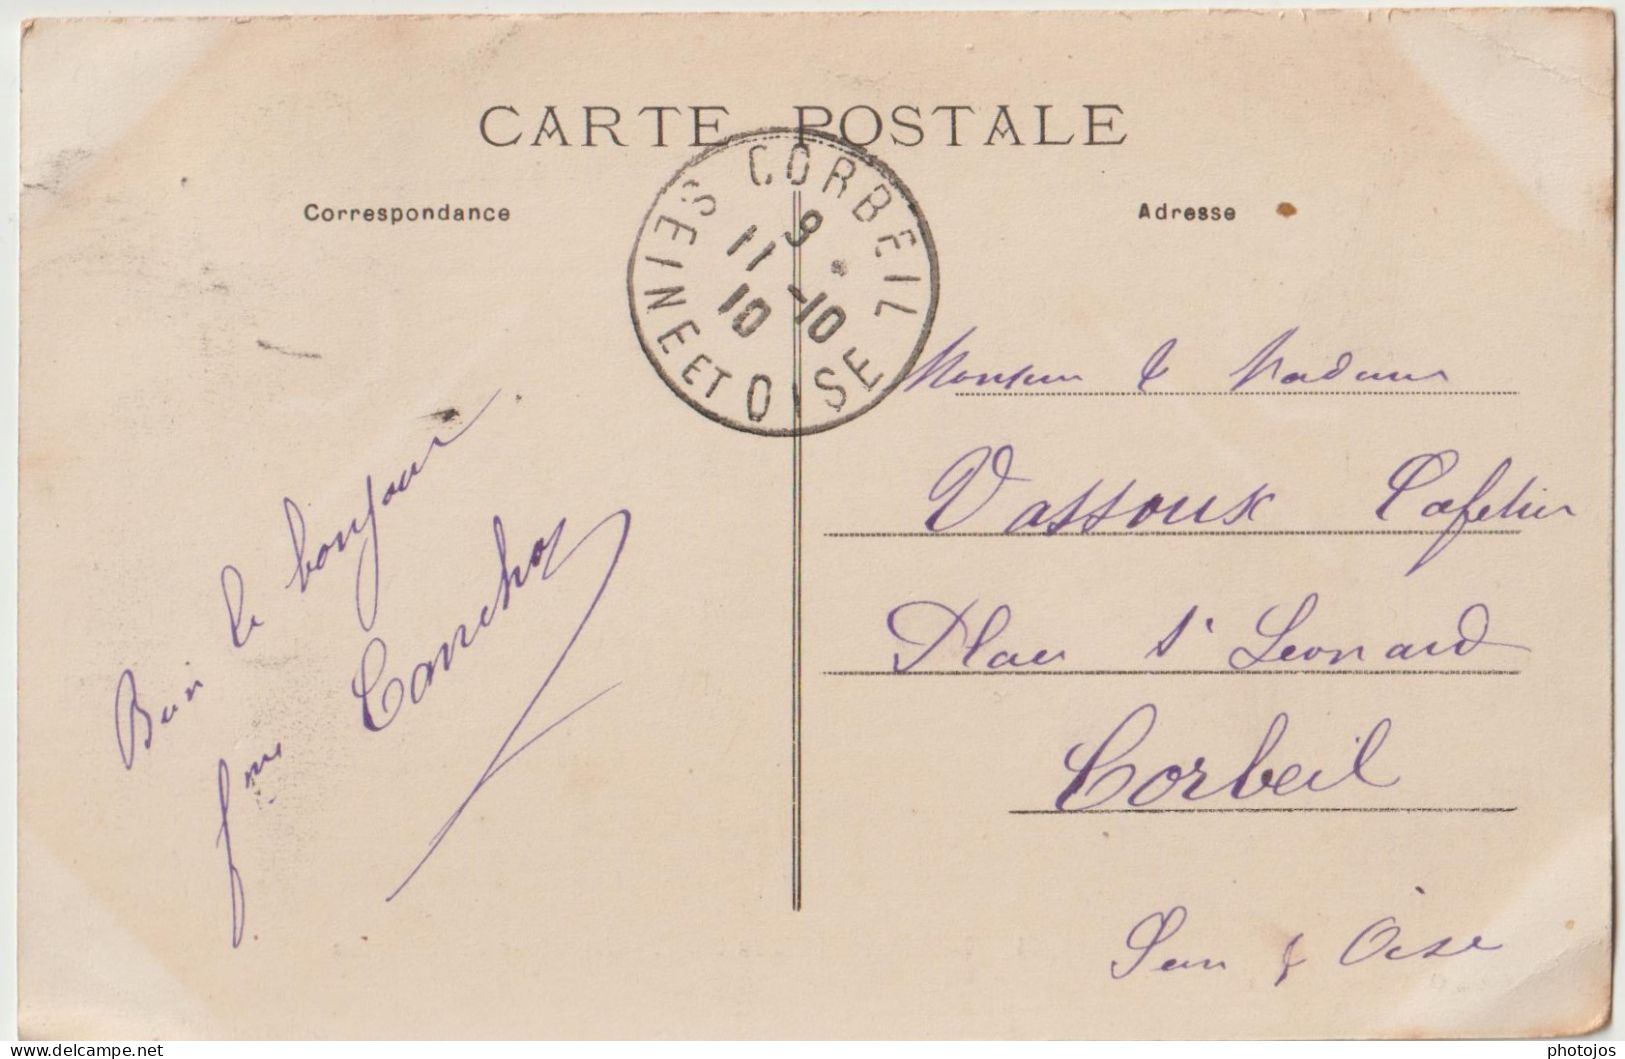 CARTE POSTALE
Correspondance
Adresse
CORBEIL
9
11 -10
10
SEINE ET OISE
Bien le bonjour
Monsieur & Madame
Vassoux Cafetier
Place St Leonard
Corbeil
Seine & Oise
delcampe.net
photojos